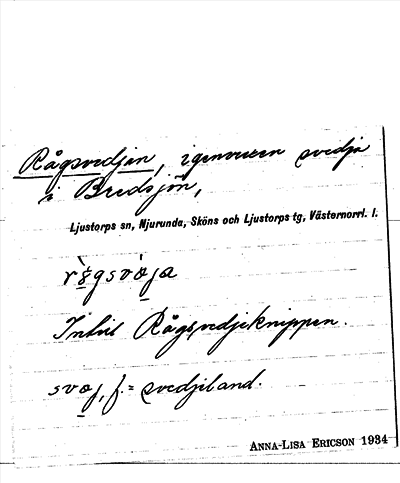 Rågsvedjan, igenvuxen svedja
i Bredsjön,
Ljustorps sn, Njurunda, Sköns och Ljustorps tg, Västernorrl. l.
Intill Rågsvedjeknippen.
svæj, f. = svedjeland.
ANNA-LISA ERICSON 1934